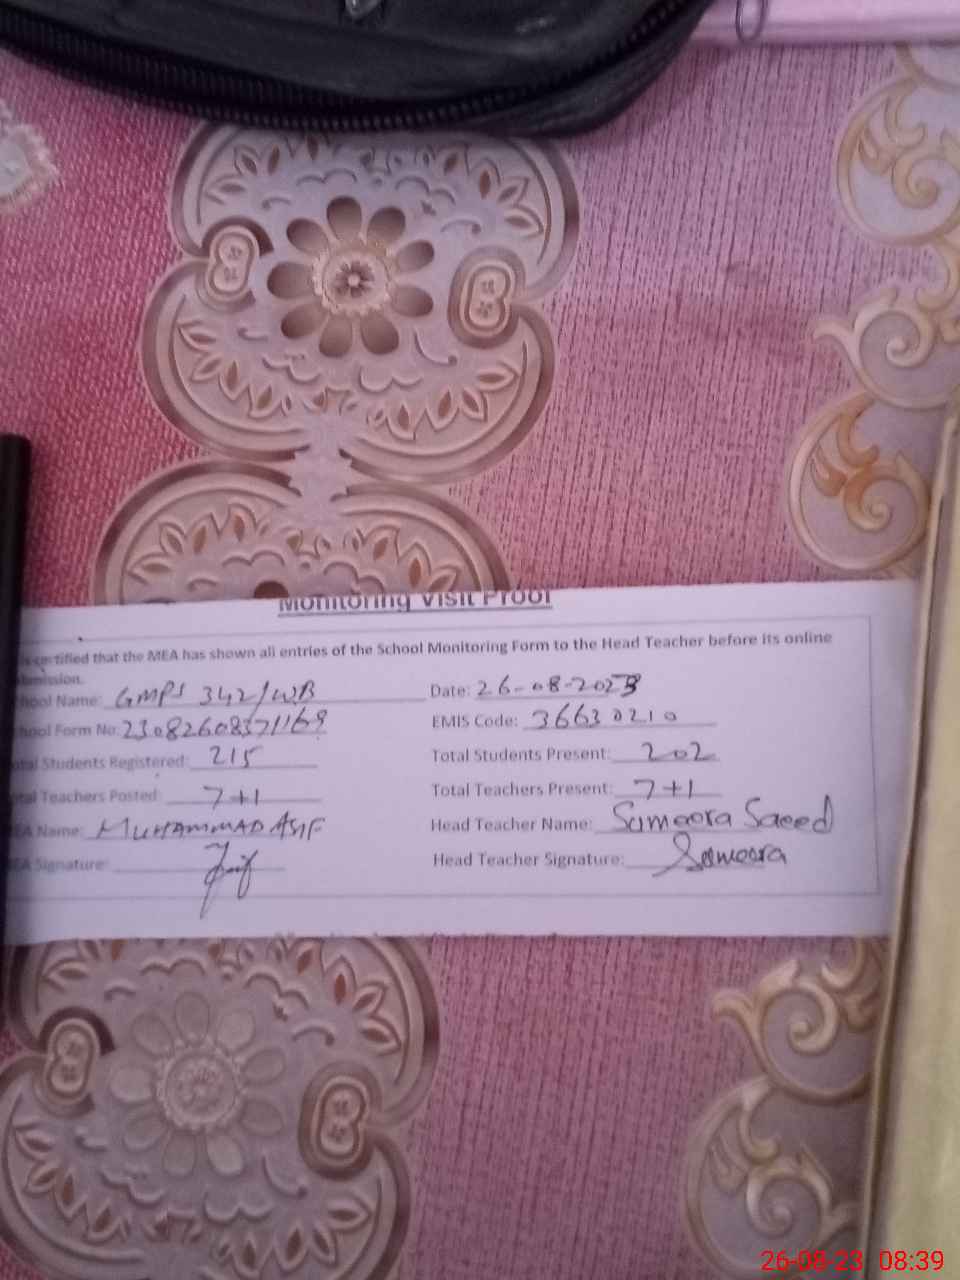 Monitoring Visit Proof
certified that the MEA has shown all entries of the School Monitoring Form to the Head Teacher before its online
bmission.
hool Name: GMPS 342/WB Date: 26-08-2023
hool Form No: 23082608571169 EMIS Code: 36630210
otal Students Registered: 215 Total Students Present: 202
otal Teachers Posted: 7+1 Total Teachers Present: 7+1
EA Name: MUHAMMAD ASIF Head Teacher Name: Sameera Saeed
EA Signature: Head Teacher Signature: Sameera
26-08-23 08:39